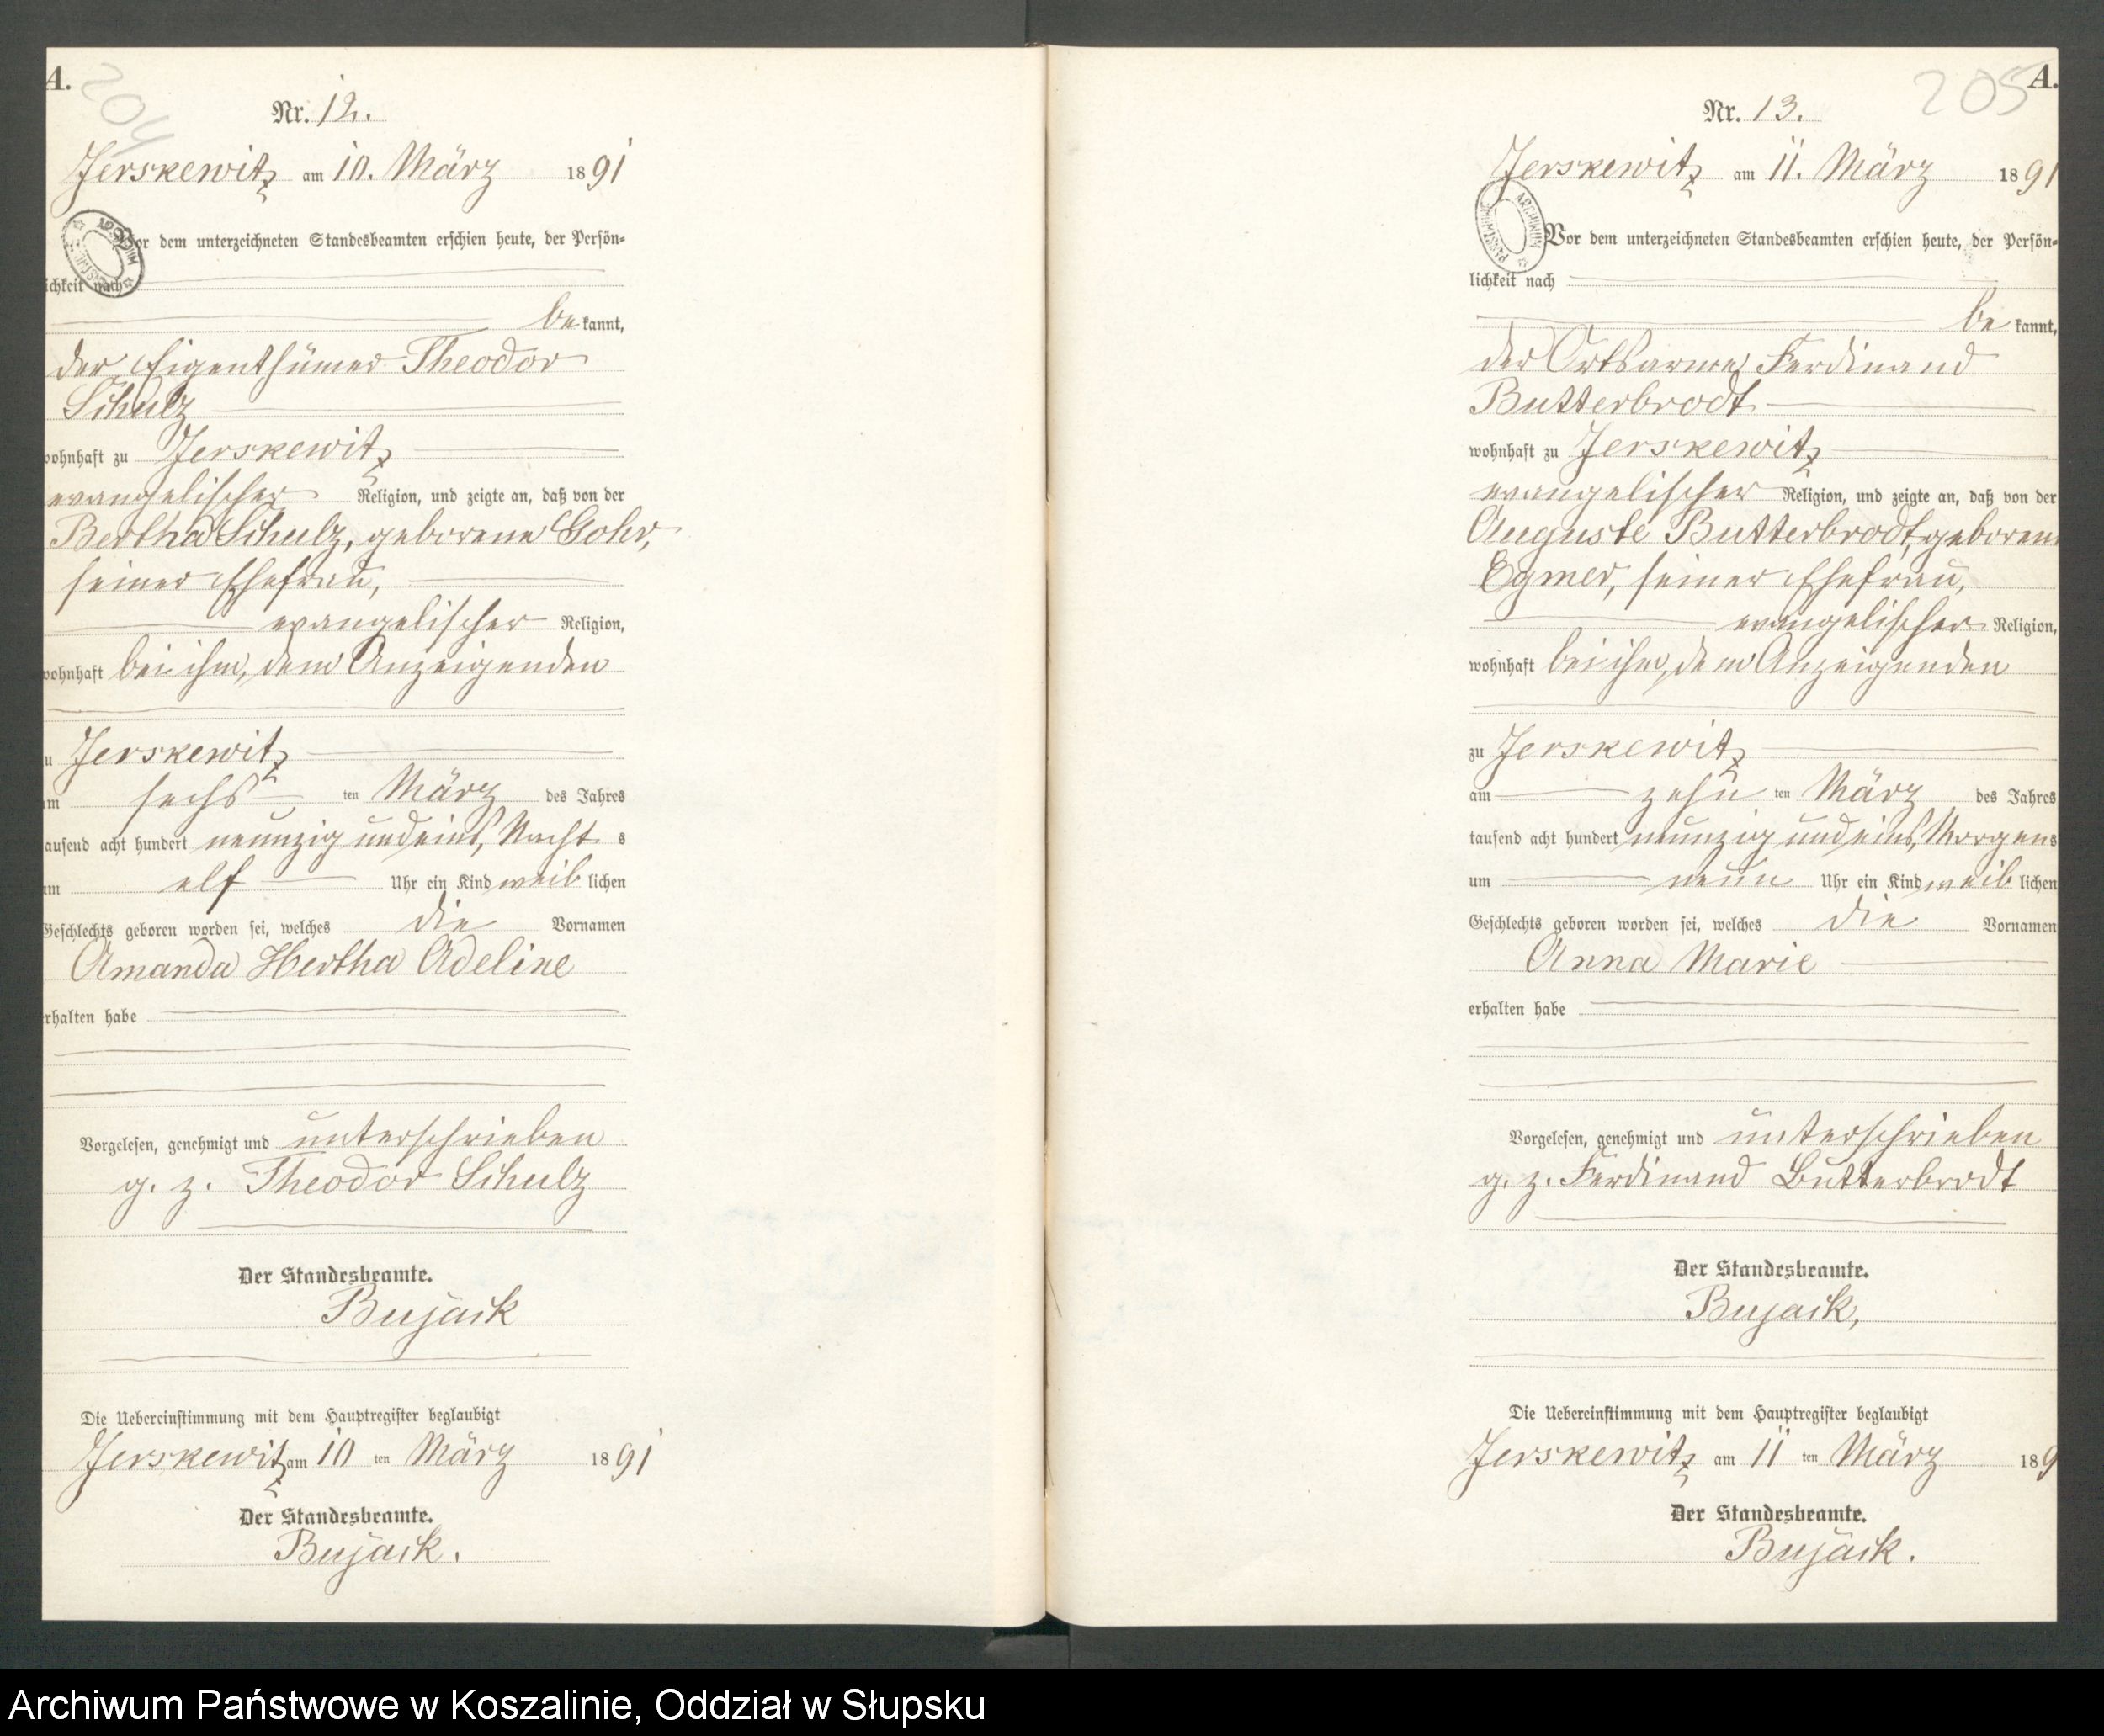 A.
204
Nr. 12.
Jerskewitz am 10. März 1891
Vor dem unterzeichneten Standesbeamten erschien heute, der Persön=
ichkeit nach
be kannt,
der Eigenthümer Theodor
Schulz
wohnhaft zu Jerskewitz
evangelischer Religion, und zeigte an, daß von der
Bertha Schulz, geborene Gohr,
seiner Ehefrau,
evangelischer Religion,
wohnhaft bei ihm, dem Anzeigenden
u Jerskewitz
am sechs ten März des Jahres
ausend acht hundert neunzig und eins, Nacht s
um elf Uhr ein Kind weib lichen
Geschlechts geboren worden sei, welches die Vornamen
Amanda Hertha Adeline
erhalten habe
Vorgelesen, genehmigt und unterschrieben
g. z. Theodor Schulz
Der Standesbeamte.
Bujack
Die Uebereinstimmung mit dem Hauptregister beglaubigt
Jerskewitz am 10 ten März 1891
Der Standesbeamte.
Bujack.
205
A.
Nr. 13.
Jerskewitz am 11. März 1891
ARCHIWUM PAŃSTWOWE
Vor dem unterzeichneten Standesbeamten erschien heute, der Persön=
lichkeit nach
be kannt,
der Ortsarme Ferdinand
Butterbrodt
wohnhaft zu Jerskewitz
evangelischer Religion, und zeigte an, daß von der
Auguste Butterbrodt, geboren
Egmer, seiner Ehefrau,
evangelischer Religion,
wohnhaft bei ihm, dem Anzeigenden
zu Jerskewitz
am zehn ten März des Jahres
tausend acht hundert neunzig und eins, Morgens
um neun Uhr ein Kind weib lichen
Geschlechts geboren worden sei, welches die Vornamen
Anna Marie
erhalten habe
Vorgelesen, genehmigt und unterschrieben
g. z. Ferdinand Butterbrodt
Der Standesbeamte.
Bujack,
Die Uebereinstimmung mit dem Hauptregister beglaubigt
Jerskewitz am 11 ten März 189
Der Standesbeamte.
Bujack.
Archiwum Państwowe w Koszalinie, Oddział w Słupsku